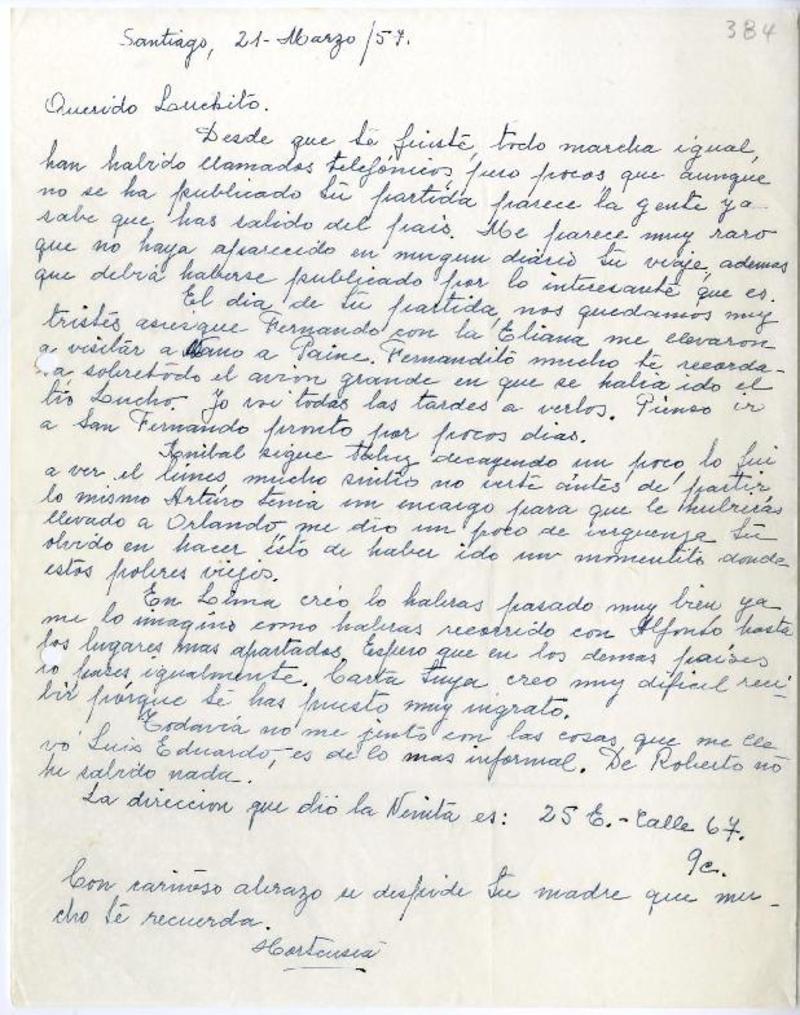 384
Santiago, 21- Marzo/57.
Querido Luchito.
Desde que té fuiste, todo marcha igual,
han habido llamados telefónicos, pero pocos que aunque
no se ha publicado tú partida parece la gente ya
sabe que has salido del pais. Me parece muy raro
que no haya aparecido en ningun diario tu viaje, ademas
que debia haberse publicado por lo interesante que es.
El dia de tu partida, nos quedamos muy
tristes asi es que Fernando con la Eliana me llevaron
a visitar a Nano a Paine. Fernandito mucho te recorda-
a sobretodo el avion grande en que se habia ido el
tio Lucho. Yo voi todas las tardes a verlos. Pienso ir
a San Fernando pronto por pocos dias.
Anibal sigue decayendo un poco, lo fui
a ver el lúnes mucho sintio no verte ántes de partir,
lo mismo Arturo tenia un encargo para que le hubieras
llevado a Orlando, me dio un poco de verguenza tú
olvido en hacer ésto de haber ido un momentito donde
estos pobres viejos.
En Lima creo lo habras pasado muy bien, ya
me lo imagino como habras recorrido con Alfonso hasta
los lugares mas apartados. Espero que en los demas países
lo pases igualmente. Carta tuya creo muy dificil reci-
bir porque té has puesto muy ingrato.
Todavia no me junto con las cosas que me lle
vó Luis Eduardo, es de lo mas informal. De Roberto no
he sabido nada.
La direccion que dió la Nenita es: 25 E.- Calle 67.
9c.
Con cariñoso abrazo se despide tu madre que mu-
cho té recuerda.
Hortensia